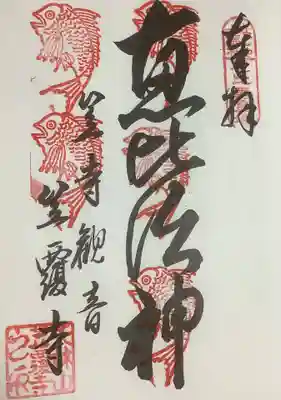 奉拝
恵比須神
笠寺觀音
笠覆寺